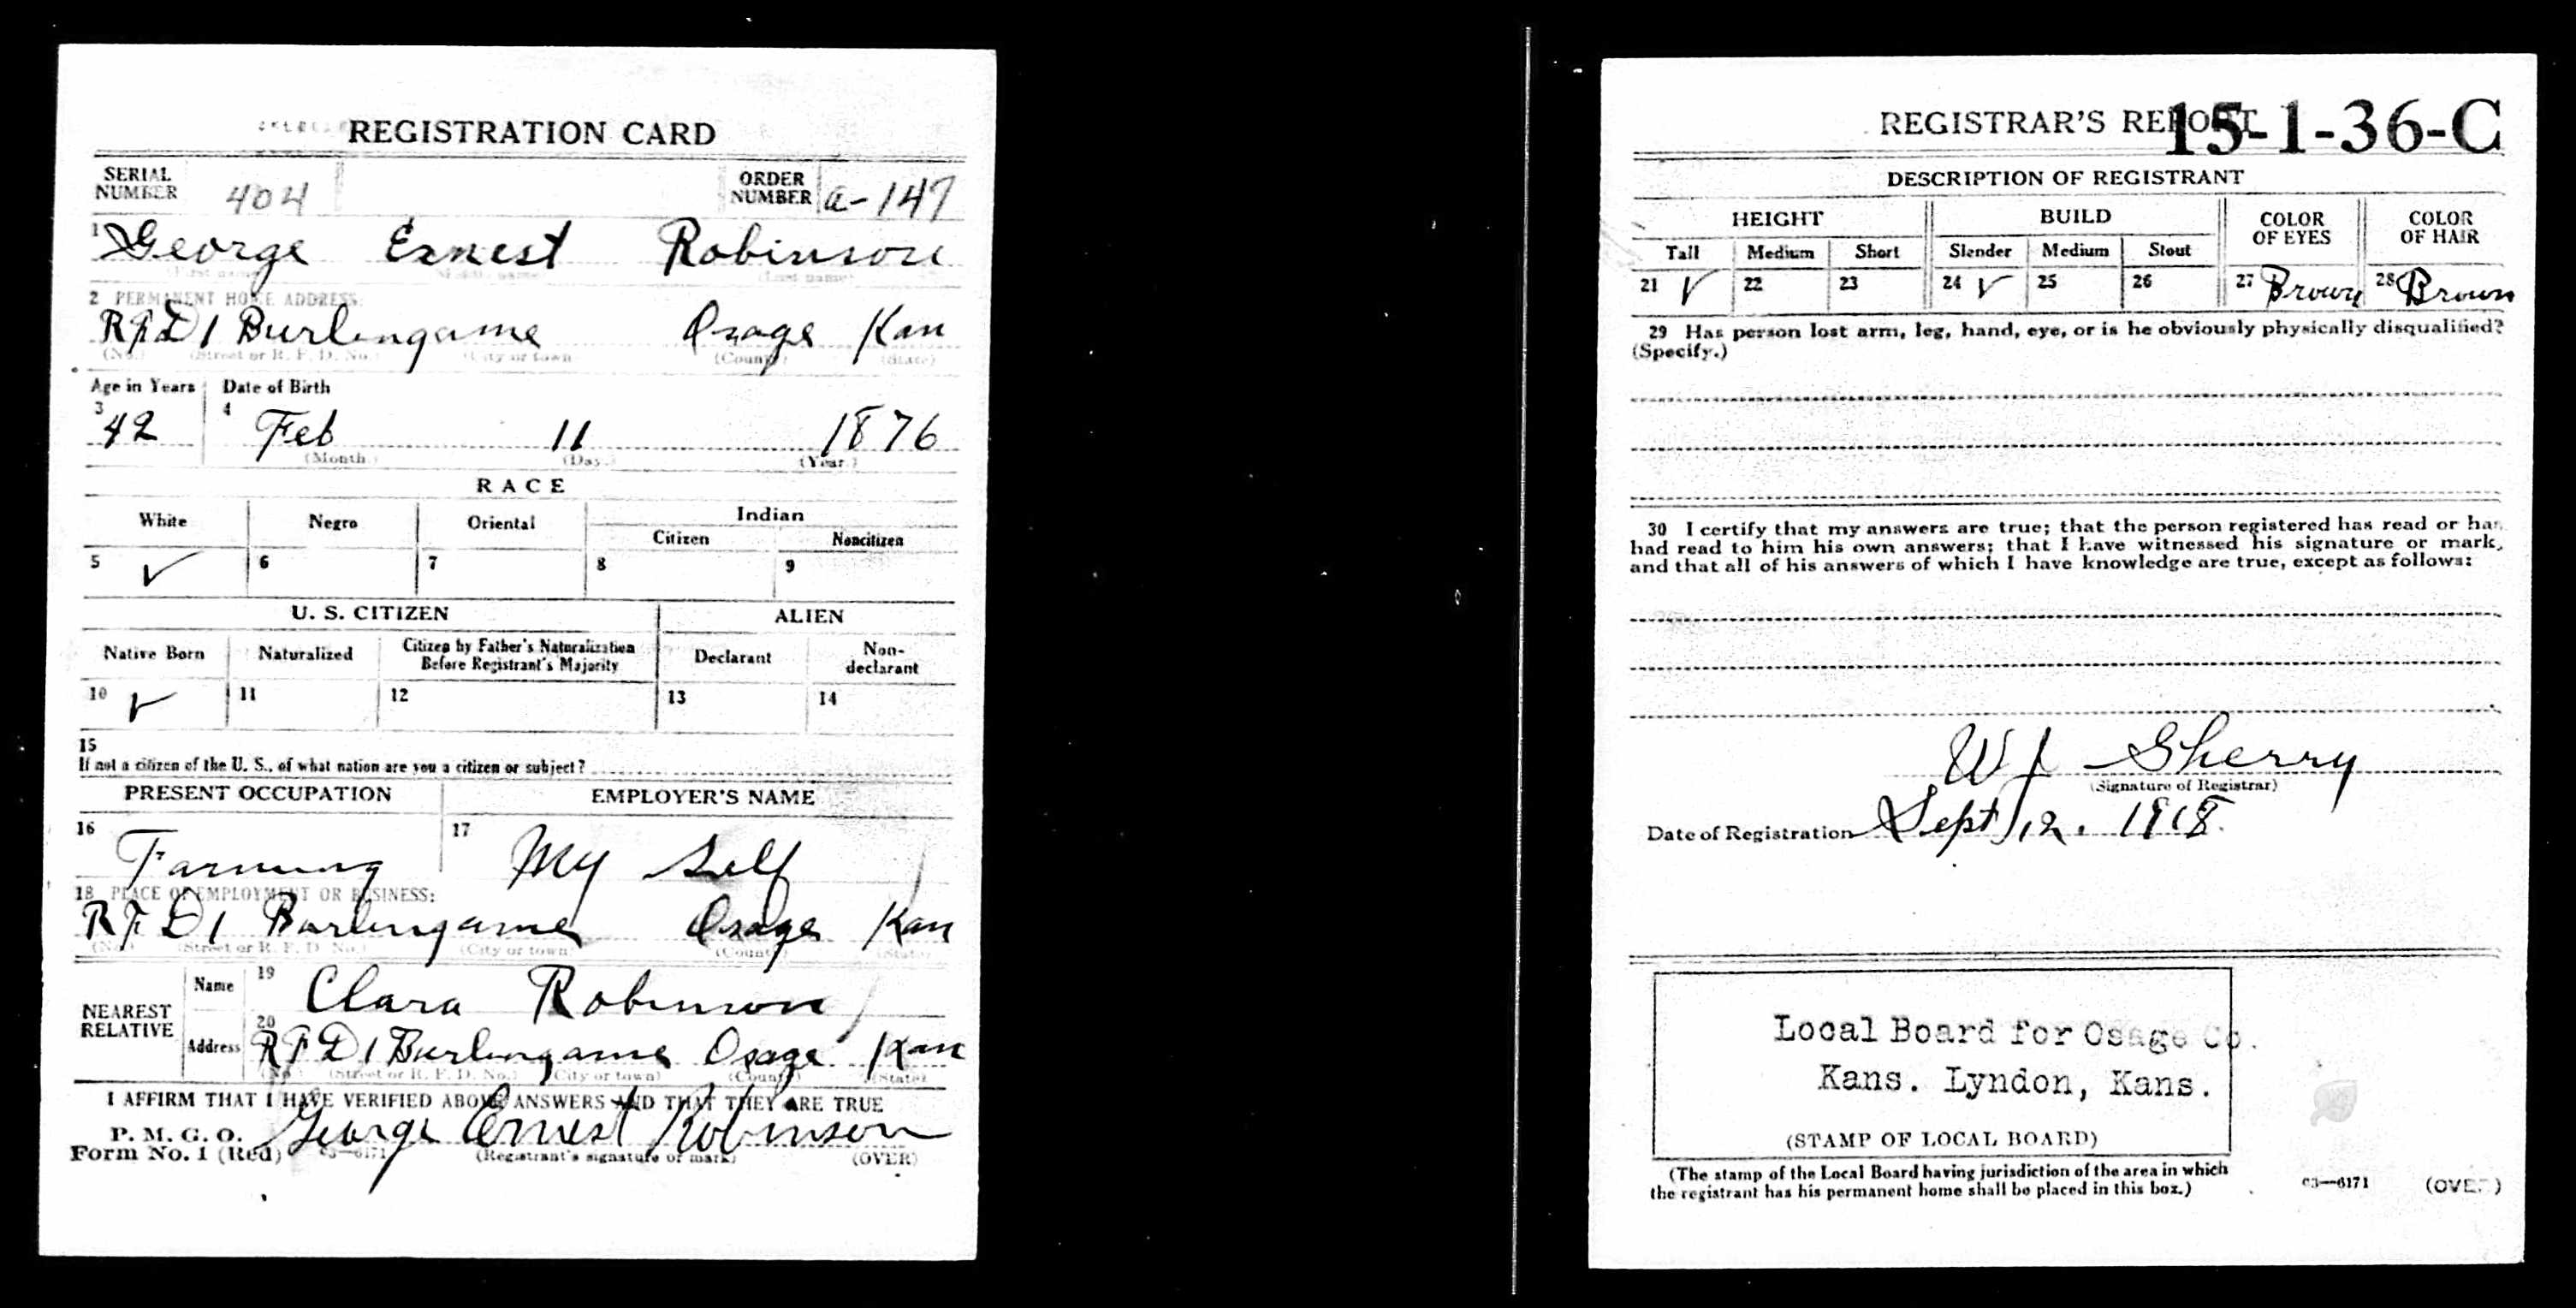 REGISTRATION CARD
SERIAL NUMBER 404 ORDER NUMBER a-147
1 George Ernest Robinson
(Last name)
2 PERMANENT HOME ADDRESS:
RFD 1 Burlingame Osage Kan
(No.) (Street or R. F. D. No.) (City or town) (County) (State)
Age in Years Date of Birth
3 42 4 Feb 11 1876
(Month.) (Day.) (Year.)
RACE
White Negro Oriental Indian
Citizen Noncitizen
5 ✓ 6 7 8 9
U. S. CITIZEN ALIEN
Native Born Naturalized Citizen by Father's Naturalization Before Registrant's Majority Declarant Non-declarant
10 ✓ 11 12 13 14
15
If not a citizen of the U. S., of what nation are you a citizen or subject?
PRESENT OCCUPATION EMPLOYER'S NAME
16 Farming 17 My Self
18 PLACE OF EMPLOYMENT OR BUSINESS:
RFD 1 Burlingame Osage Kan
(No.) (Street or R. F. D. No.) (City or town) (County) (State)
NEAREST RELATIVE
Name 19 Clara Robinson
Address 20 RFD 1 Burlingame Osage Kan
(No.) (Street or R. F. D. No.) (City or town) (County) (State)
I AFFIRM THAT I HAVE VERIFIED ABOVE ANSWERS AND THAT THEY ARE TRUE
P. M. G. O.
Form No. 1 (Red) 03—6171 George Ernest Robinson
(Registrant's signature or mark) (OVER)
REGISTRAR'S REPORT 15-1-36-C
DESCRIPTION OF REGISTRANT
HEIGHT BUILD COLOR OF EYES COLOR OF HAIR
Tall Medium Short Slender Medium Stout
21 ✓ 22 23 24 ✓ 25 26 27 Brown 28 Brown
29 Has person lost arm, leg, hand, eye, or is he obviously physically disqualified?
(Specify.)
30 I certify that my answers are true; that the person registered has read or has
had read to him his own answers; that I have witnessed his signature or mark,
and that all of his answers of which I have knowledge are true, except as follows:
W J Sherry
(Signature of Registrar)
Date of Registration Sept 12. 1918.
Local Board for Osage Co.
Kans. Lyndon, Kans.
(STAMP OF LOCAL BOARD)
(The stamp of the Local Board having jurisdiction of the area in which
the registrant has his permanent home shall be placed in this box.)
03—6171 (OVER)